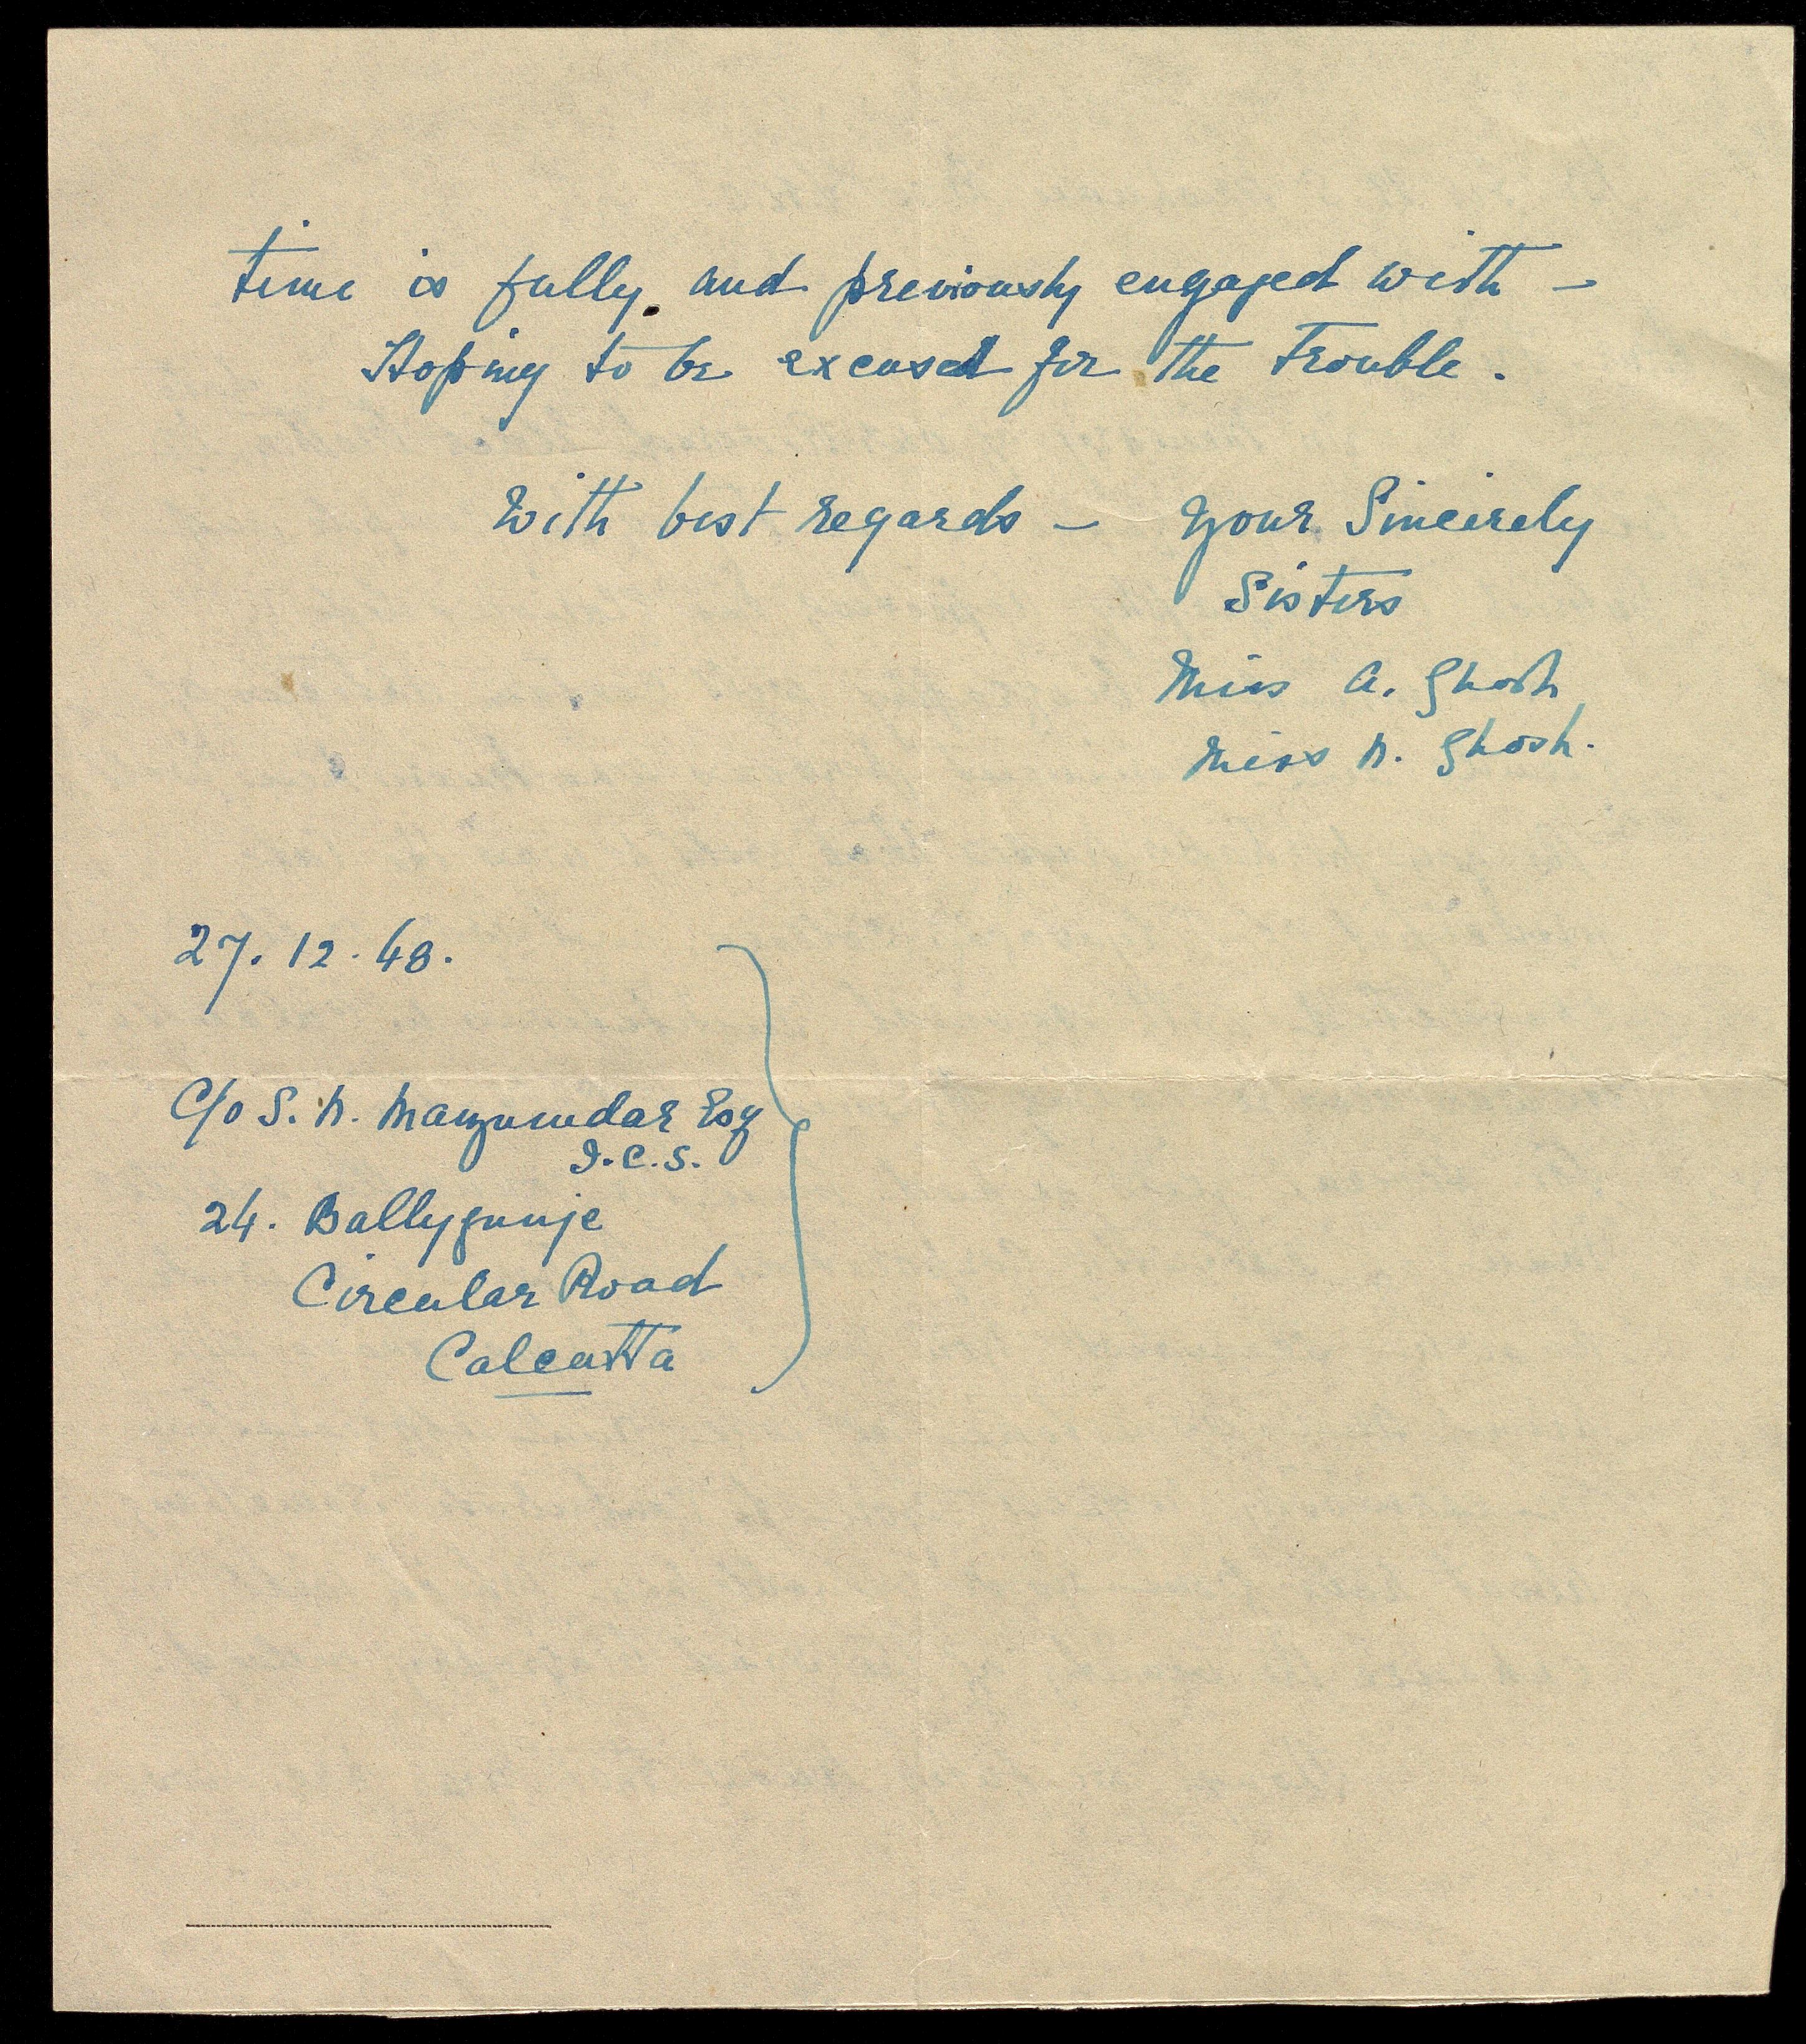 time is fully and previously engaged with –
Hoping to be excused for the trouble.
With best regards – Your Sincerely
Sisters
Miss A. Ghosh
Miss N. Ghosh.
27. 12. 48.
C/o S. N. Mazumdar Esq
I.C.S.
24. Ballygunje
Circular Road
Calcutta